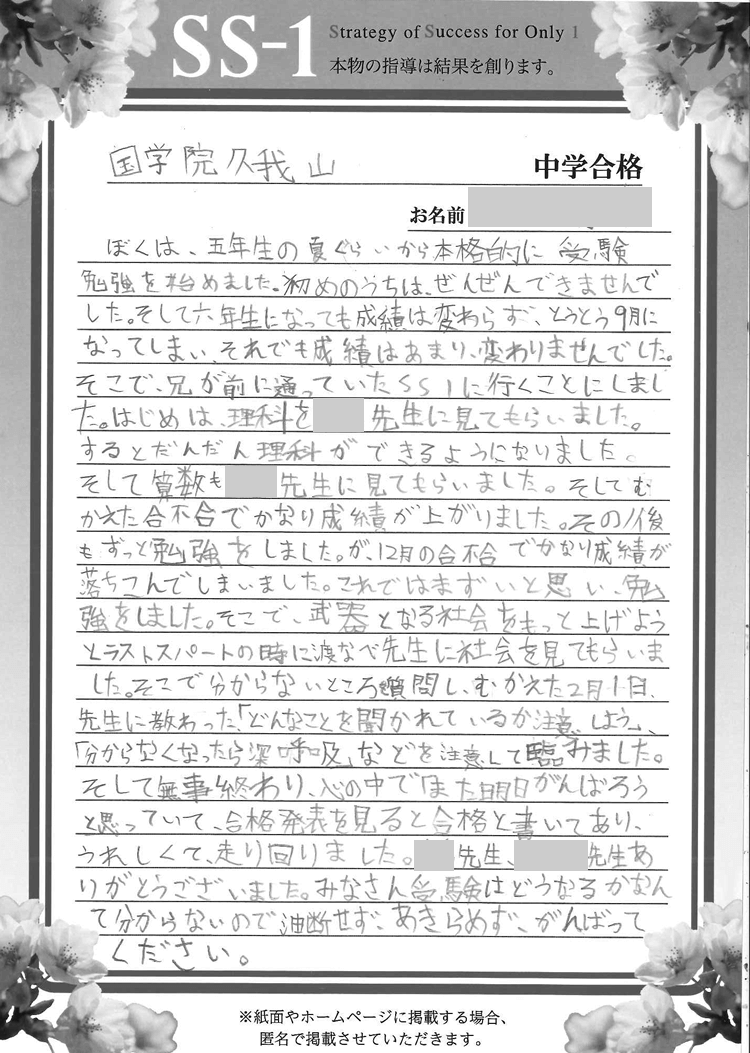 SS-1
Strategy of Success for Only 1
本物の指導は結果を創ります。
国学院久我山
中学合格
お名前
ぼくは、五年生の夏ぐらいから本格的に受験
勉強を始めました。初めのうちは、ぜんぜんできませんで
した。そして六年生になっても成績は変わらず、とうとう9月に
なってしまい、それでも成績はあまり、変わりませんでした。
そこで、兄が前に通っていたSS1に行くことにしまし
た。はじめは、理科を 先生に見てもらいました。
するとだんだん理科ができるようになりました。
そして算数も 先生に見てもらいました。そしてむ
かえた合不合でかなり成績が上がりました。その後
もずっと勉強をしました。が、12月の合不合でかなり成績が
落ちこんでしまいました。これではまずいと思い、勉
強をしました。そこで、武器となる社会をもっと上げよう
とラストスパートの時に渡なべ先生に社会を見てもらいま
した。そこで分からないところ質問し、むかえた2月1日、
先生に教わった、「どんなことを聞かれているか注意しよう」、
「分からなくなったら深呼吸」などを注意して臨みました。
そして無事終わり、心の中で「また明日がんばろう
と思っていて、合格発表を見ると合格と書いてあり、
うれしくて、走り回りました。 先生、 先生あ
りがとうございました。みなさん受験はどうなるかなん
て分からないので油断せず、あきらめず、がんばって
ください。
※紙面やホームページに掲載する場合、
匿名で掲載させていただきます。